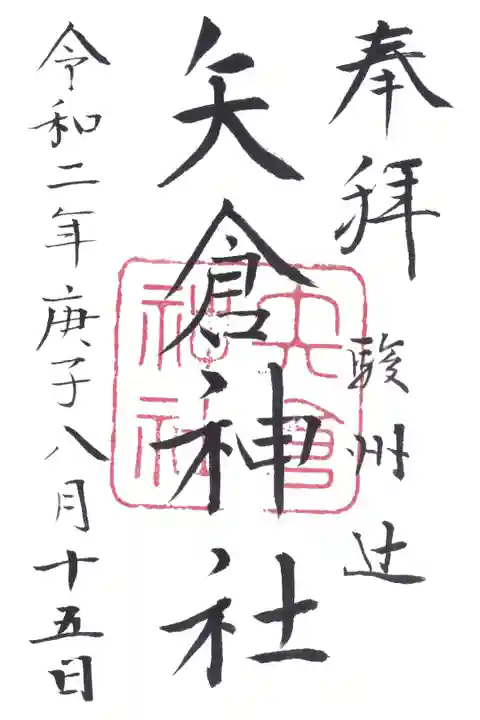 奉拝 駿州辻
矢倉神社
矢倉
神社
令和二年庚子八月十五日